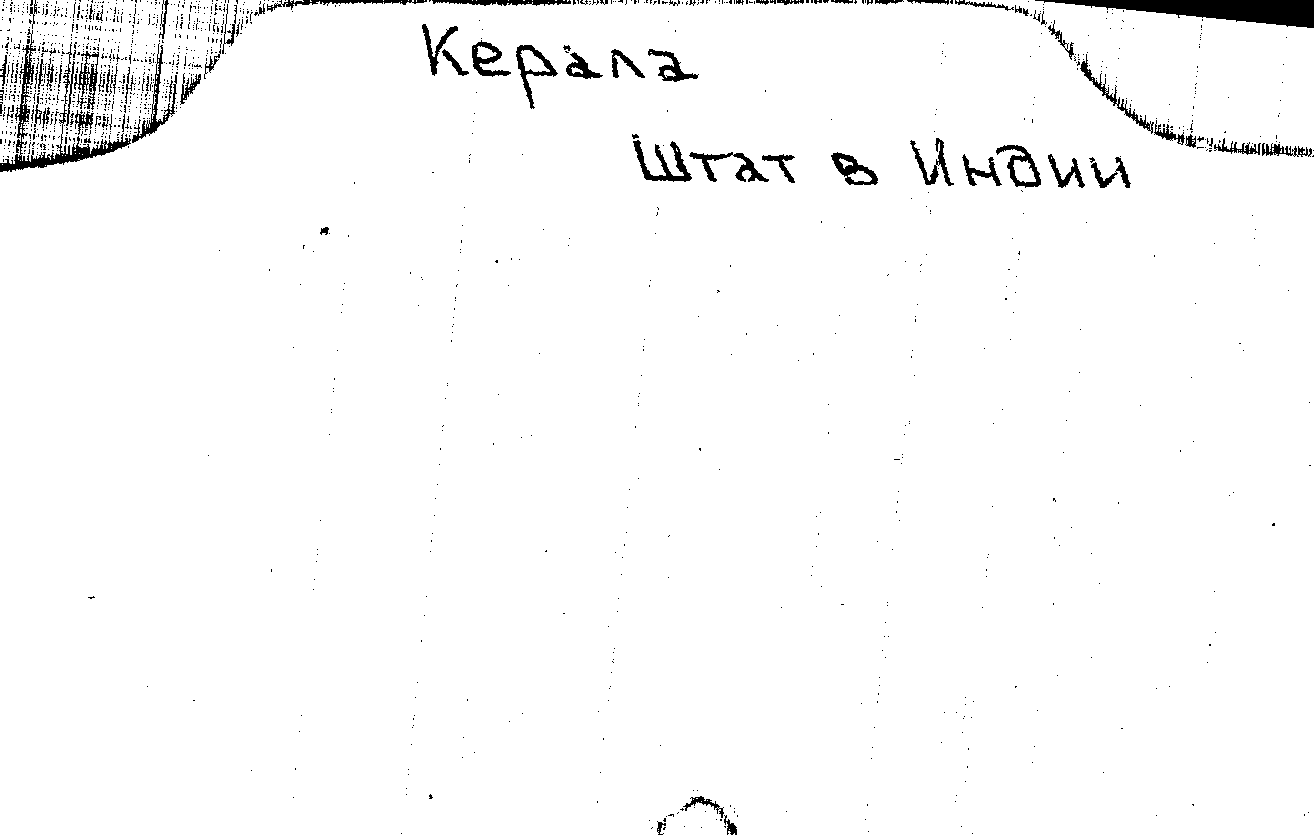 Керала
Штат в Индии